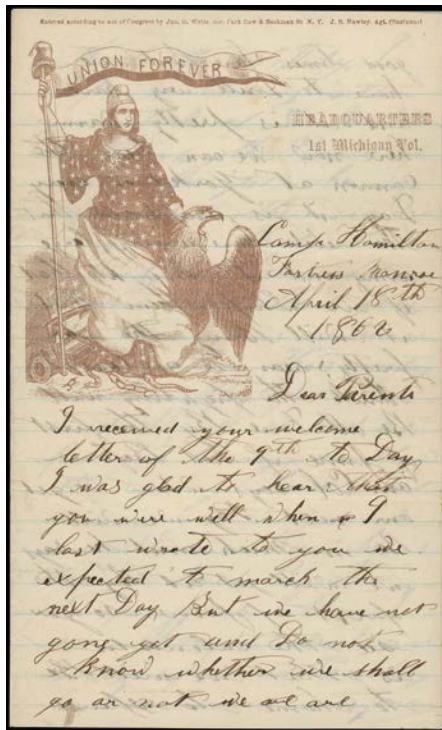 Entered according to act of Congress by Jno. G. Wells, cor. Park Row & Beekman St N. Y. J. S. Hawley, Agt.
UNION FOREVER
HEADQUARTERS
1st Michigan Vol.
Camp Hamilton
Fortress Monroe
April 18th
1862
Dear Parents
I received your welcome
letter of the 9th to Day
I was glad to hear that
you were well when I
last wrote to you we
expected to march the
next Day But we have not
gone yet and Do not
Know whether we shall
go or not we are